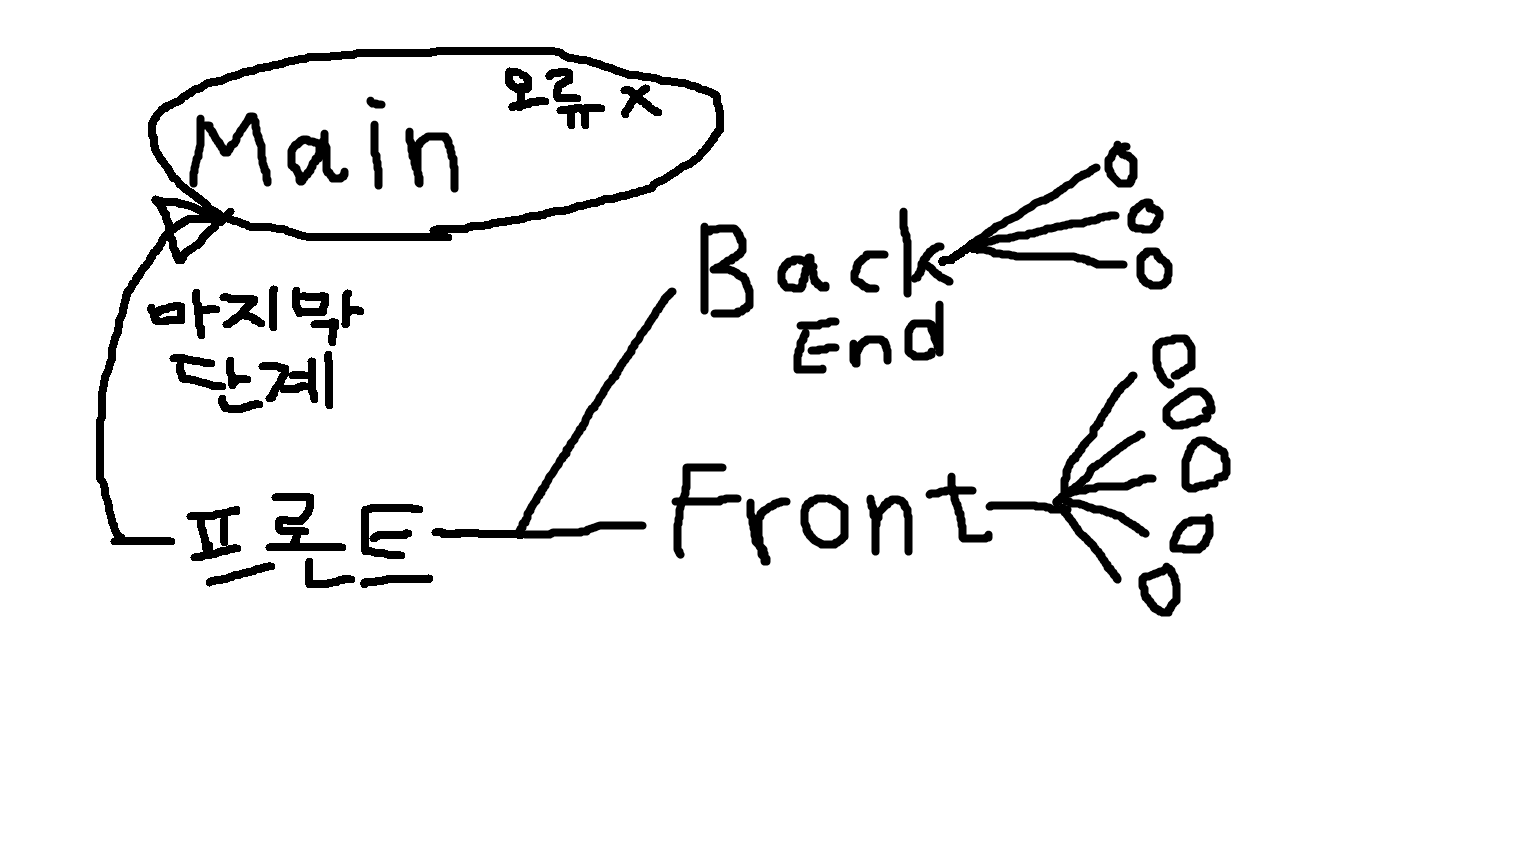 Main 오류 x
마지막
단계
프론트
Back
End
Front